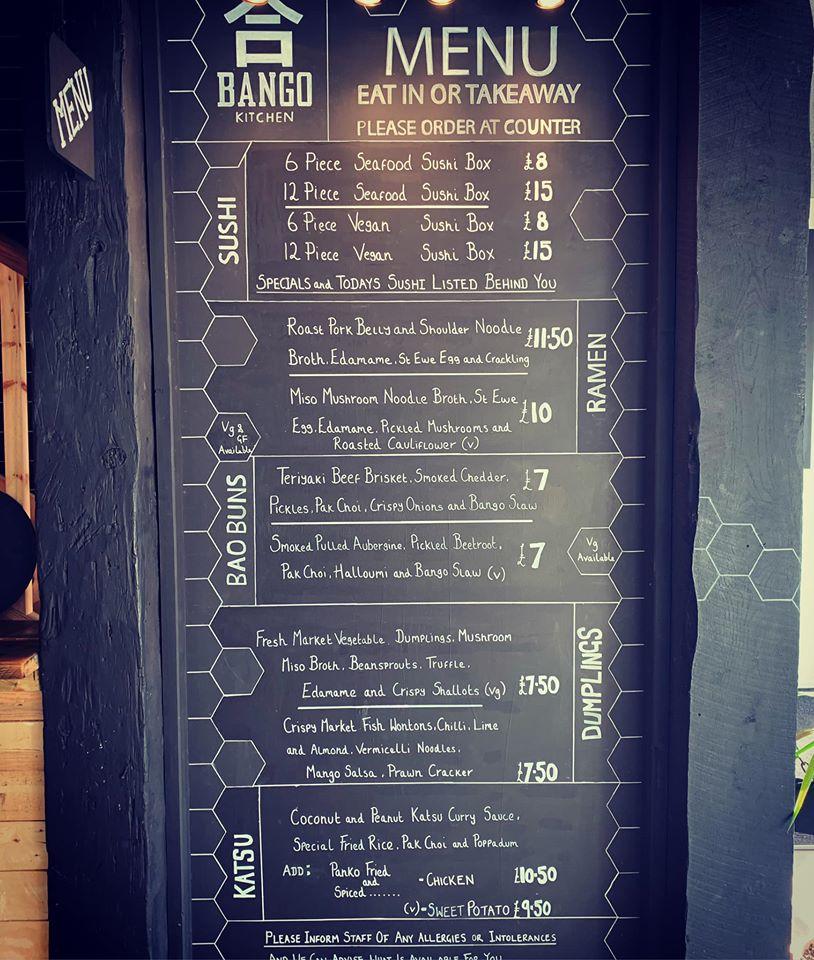 MENU
合
BANGO
KITCHEN
MENU
EAT IN OR TAKEAWAY
PLEASE ORDER AT COUNTER
SUSHI
6 Piece Seafood Sushi Box £8
12 Piece Seafood Sushi Box £15
6 Piece Vegan Sushi Box £8
12 Piece Vegan Sushi Box £15
SPECIALS and TODAYS SUSHI LISTED BEHIND YOU
RAMEN
Roast Pork Belly and Shoulder Noodle £11.50
Broth, Edamame, St Ewe Egg and Crackling
Miso Mushroom Noodle Broth, St Ewe £10
Egg, Edamame, Pickled Mushrooms and
Roasted Cauliflower (v)
Vg &
GF
Available
BAO BUNS
Teriyaki Beef Brisket, Smoked Chedder, £7
Pickles, Pak Choi, Crispy Onions and Bango Slaw
Smoked Pulled Aubergine, Pickled Beetroot, £7
Pak Choi, Halloumi and Bango Slaw (v)
Vg
Available
DUMPLINGS
Fresh Market Vegetable Dumplings, Mushroom
Miso Broth, Beansprouts, Truffle,
Edamame and Crispy Shallots (vg) £7.50
Crispy Market Fish Wontons, Chilli, Lime
and Almond, Vermicelli Noodles,
Mango Salsa, Prawn Cracker £7.50
KATSU
Coconut and Peanut Katsu Curry Sauce,
Special Fried Rice, Pak Choi and Poppadum
ADD: Panko Fried
and
Spiced....... - CHICKEN £10.50
(v) - SWEET POTATO £9.50
PLEASE INFORM STAFF OF ANY ALLERGIES OR INTOLERANCES
AND WE CAN ADVISE WHAT IS AVAILABLE FOR YOU